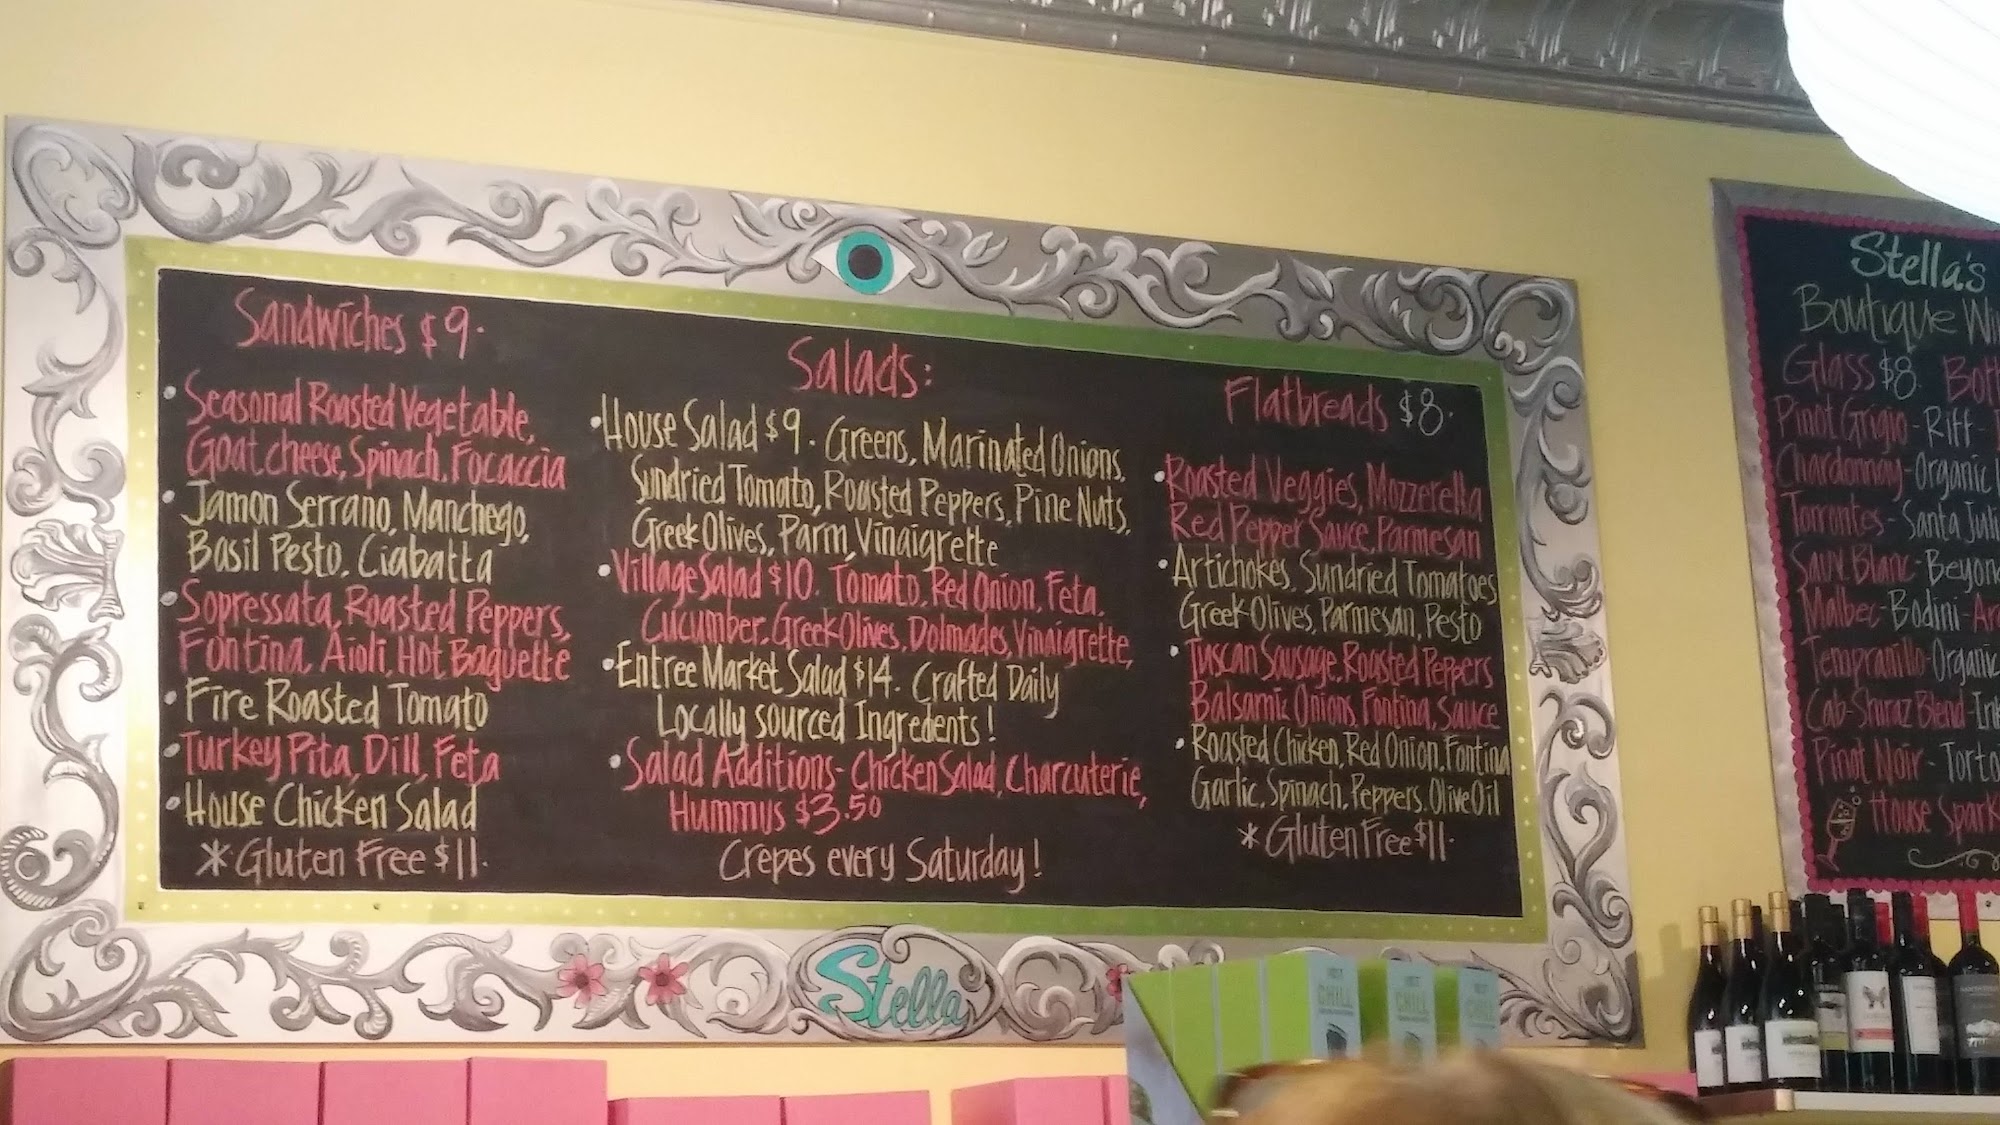 Sandwiches $9.
• Seasonal Roasted Vegetable,
Goat cheese, Spinach, Focaccia
• Jamon Serrano, Manchego,
Basil Pesto, Ciabatta
• Sopressata, Roasted Peppers,
Fontina, Aioli, Hot Baguette
• Fire Roasted Tomato
• Turkey Pita, Dill, Feta
• House Chicken Salad
* Gluten Free $11.
Salads:
• House Salad $9. Greens, Marinated Onions,
Sundried Tomato, Roasted Peppers, Pine Nuts,
Greek Olives, Parm, Vinaigrette
• Village Salad $10. Tomato, Red Onion, Feta,
Cucumber, Greek Olives, Dolmades, Vinaigrette,
• Entree Market Salad $14. Crafted Daily
Locally sourced Ingredents!
• Salad Additions- Chicken Salad, Charcuterie,
Hummus $3.50
Crepes every Saturday!
Flatbreads $8.
• Roasted Veggies, Mozzerella
Red Pepper Sauce, Parmesan
• Artichokes, Sundried Tomatoes
Greek Olives, Parmesan, Pesto
• Tuscan Sausage, Roasted Peppers
Balsamic Onions, Fontina, Sauce
• Roasted Chicken, Red Onion, Fontina
Garlic, Spinach, Peppers, Olive Oil
* Gluten Free $11.
Stella
Stella's
Boutique
Glass $8.
Pinot Grigio - Riff -
Chardonnay - Organic
Torrontes - Santa
Sauv. Blanc -
Malbec - Bodini -
Tempranillo - Organic
Cab-Shiraz Blend -
Pinot Noir -
House
CHILL
CHILL
CHILL